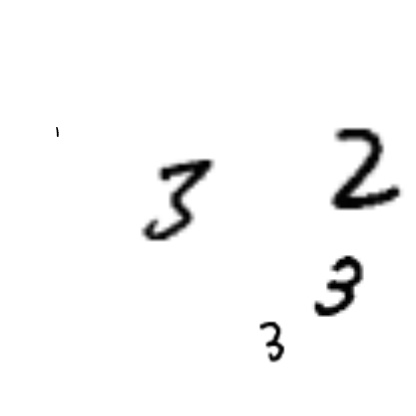 1
3 2
3
3